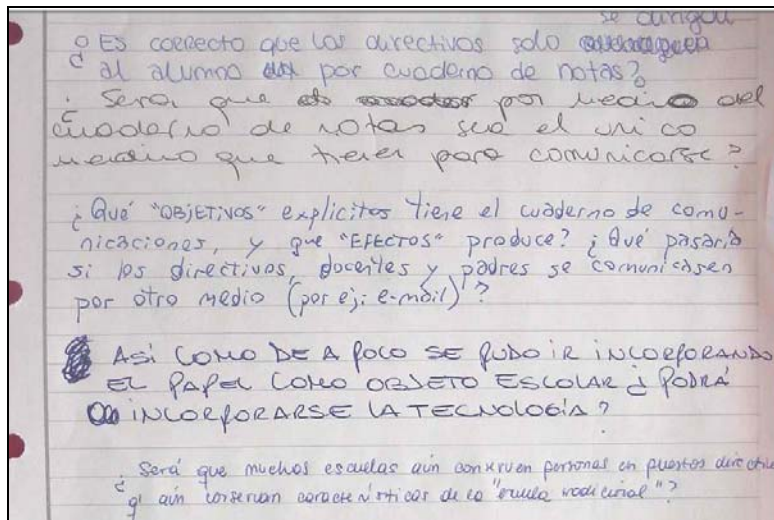 se dirigan
¿Es correcto que los directivos solo
al alumno por cuaderno de notas?
¿Será que por medio del
cuaderno de notas sea el unico
medino que tienen para comunicarse?
¿Qué "OBJETIVOS" explicitos tiene el cuaderno de comu-
nicaciones, y que "EFECTOS" produce? ¿Qué pasaría
si los directivos, docentes y padres se comunicasen
por otro medio (por ej: e-mail)?
ASÍ COMO DE A POCO SE PUDO IR INCORPORANDO
EL PAPEL COMO OBJETO ESCOLAR ¿PODRÁ
INCORPORARSE LA TECNOLOGÍA?
¿Será que muchas escuelas aún conserven personas en puestos directiv
q' aún conservan características de la "escuela tradicional"?